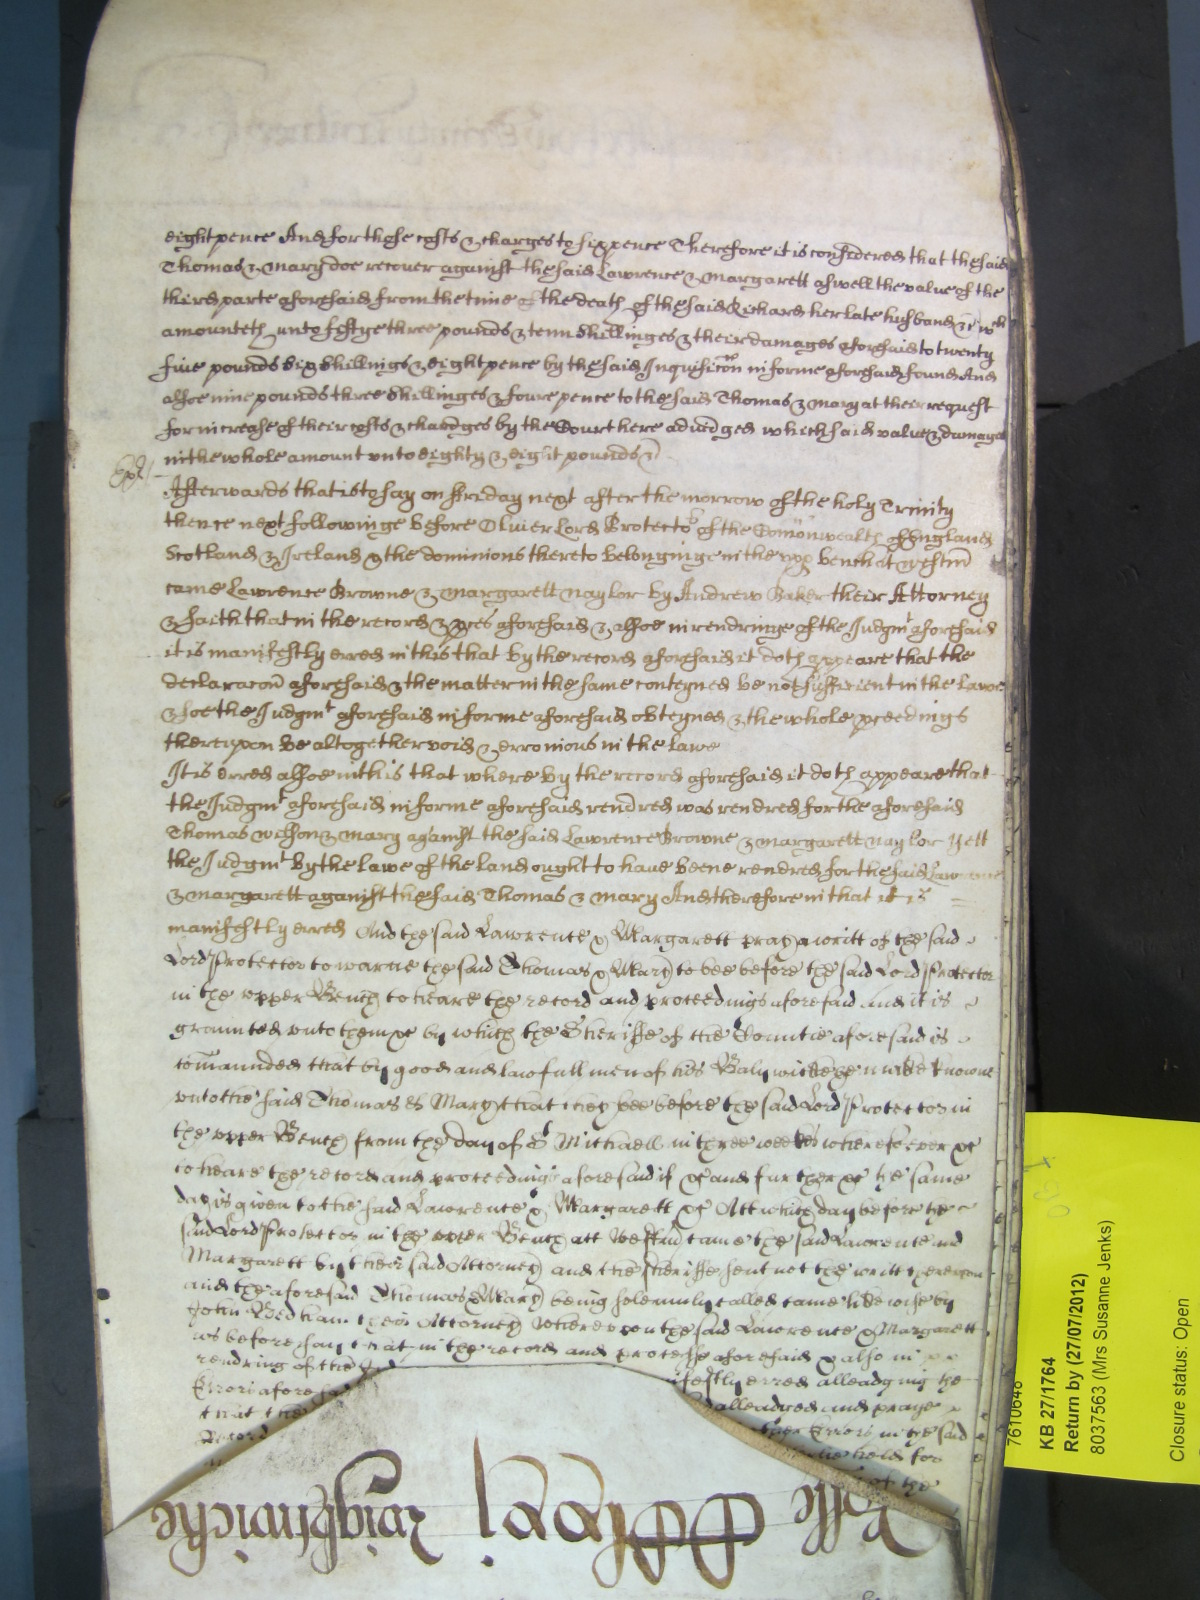 eight pence And for those costs & charges to six pence Therefore it is considered that the said
Thomas & Mary doe recover against the said Lawrence & Margarett aswell the value of the
third parte aforesaid from the time of the death of the said Richard her late husband &c wch
amounteth unto fiftye three pounds & tenn shillinges & their damages aforesaid to twenty
five pounds six shillnigs & eight pence by the said Inquisicon in forme aforesaid found And
alsoe nine pounds three shillinges & foure pence to the said Thomas & Mary at their request
for increase of their costs & chardges by the Court here adiudged which said value & damages
in the whole amount unto eighty & eight pounds &c
Afterwards that is to say on Friday next after the morrow of the holy Trinity
thence next followinge before Oliver Lord Protector of the Comonwealth of England
Scotland & Ireland & the dominions thereto belonginge in the upp bench at Westm
came Lawrence Browne & Margarett Naylor by Andrew Baker their Attorney
& saith that in the record & pces aforesaid & alsoe in rendringe of the Judgmt aforesaid
it is manifestly erred in this that by the record aforesaid it doth appeare that the
declaracon aforesaid & the matter in the same conteyned be not sufficient in the Lawe
& soe the Judgmt aforesaid in forme aforesaid obteyned & the whole pceedings
thereupon be altogether void & erronious in the lawe
It is erred alsoe in this that where by the record aforesaid it doth appeare that
the Judgmt aforesaid in forme aforesaid rendred was rendred for the aforesaid
Thomas Wilson & Mary against the said Lawrence Browne & Margarett Naylor yett
the Judgmt by the Lawe of the land ought to have beene rendred for the said Lawrence
& Margarett against the said Thomas & Mary And therefore in that it is
manifestly erred And the said Lawrence & Margarett pray a writt of the said
Lord Protector to warne the said Thomas & Mary to bee before the said Lord Protector
in the upper Bench to heare the record and proceedings aforesaid And it is
graunted unto them &c by which the Sheriffe of the Countie aforesaid is
comaunded that by good and lawfull men of his Balywicke he make knowne
unto the said Thomas & Mary that they bee before the said Lord Protector in
the upper Bench from the day of St Michaell in three weekes wheresoever &c
to heare the record and proceedings aforesaid if &c and further &c he same
day is given to the said Lawrence & Margarett &c Att which day before the
said Lord Protector in the upper Bench att Westm came the said Lawrence and
Margarett by their said Attorney and the sheriffe sent not the writt thereupon
and the aforesaid Thomas & Mary being solemnly called came likewise by
John Bedham their Attorney Whereupon the said Lawrence & Margarett
as before say that in the record and processe aforesaid & also in
rendring of the
ifestly erred alleadging the
Errors aforesaid
alleadged and praye
that the
Errors in the said
Record
held for
of the
Rolle
Wightwicke
7610648
KB 27/1764
Return by (27/07/2012)
8037563 (Mrs Susanne Jenks)
Closure status: Open